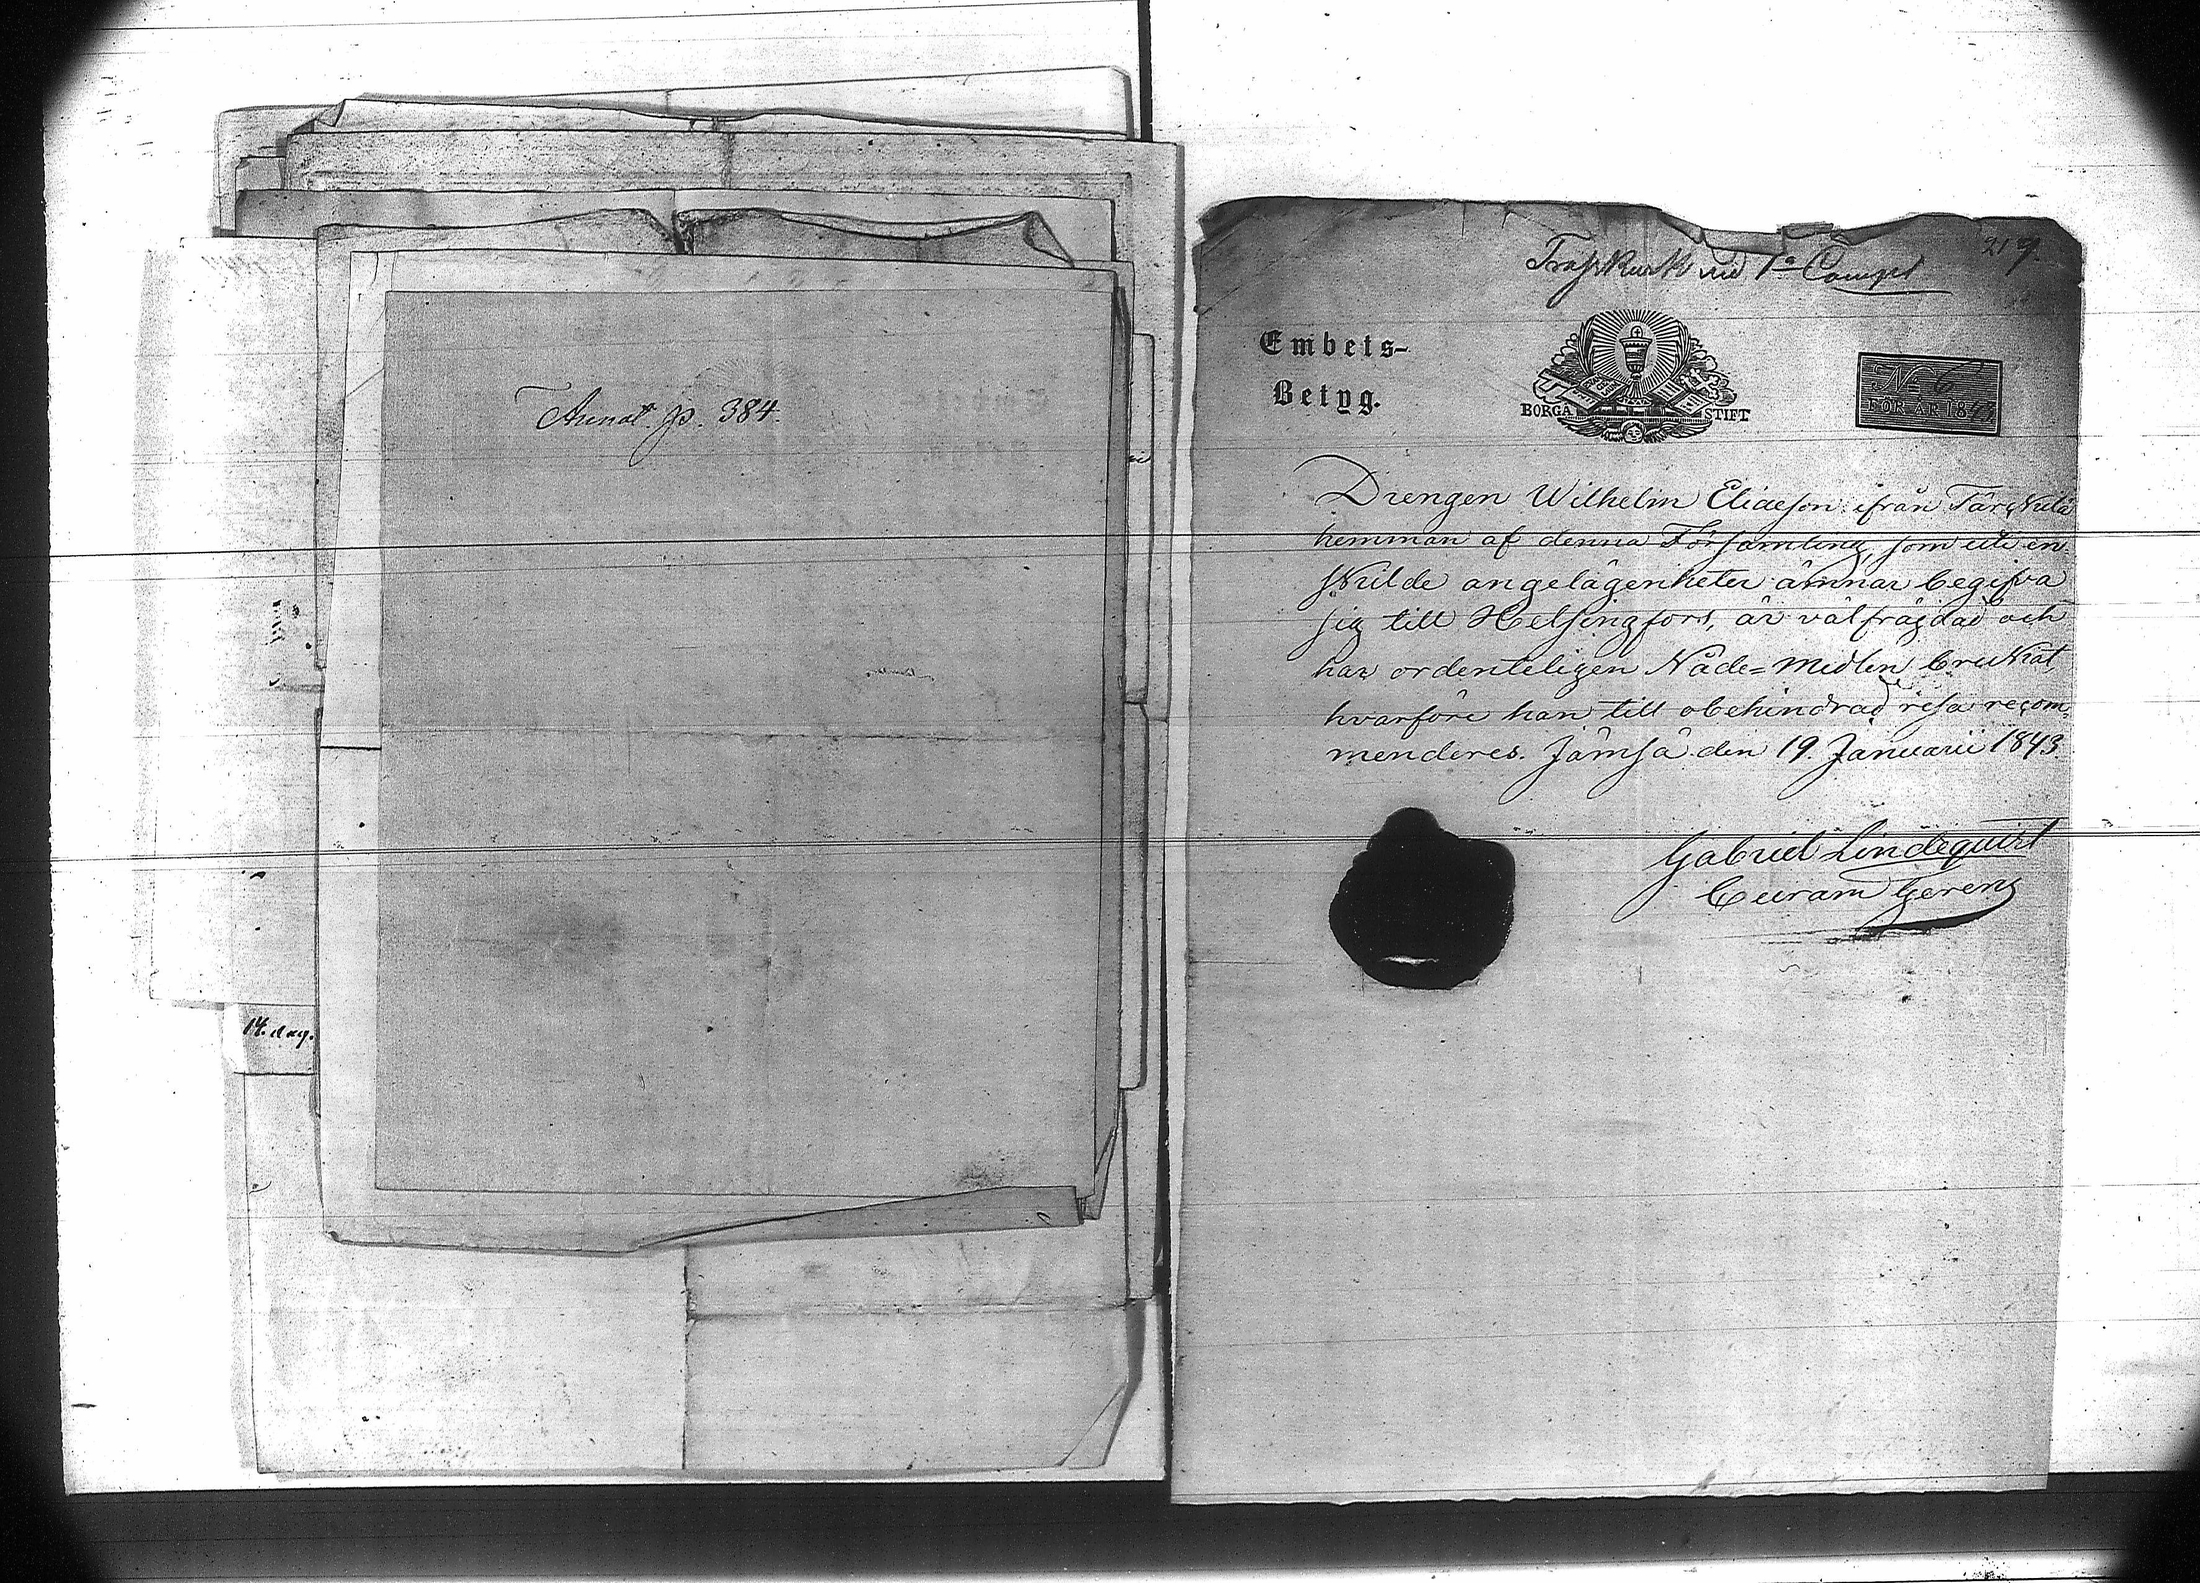 Annot. p. 384.
14. dag.
319.
vid 1a Compet
Embets-
Betyg.
BORGÅ STIFT
No 6
FÖR ÅR 1843
Drengen Wilhelm Eliaeson ifrån Tärskulä
hemman af denna Församling, som uti en-
skilde angelägenheter ämnar begifva
sig till Helsingfors, är välfrägdad och
har ordenteligen Nåde=Medlen brukat,
hvarföre han till obehindrad resa recom=
menderes. Jämsä den 19. Januarii 1843.
Gabriel Lindequist
Curam Gerens